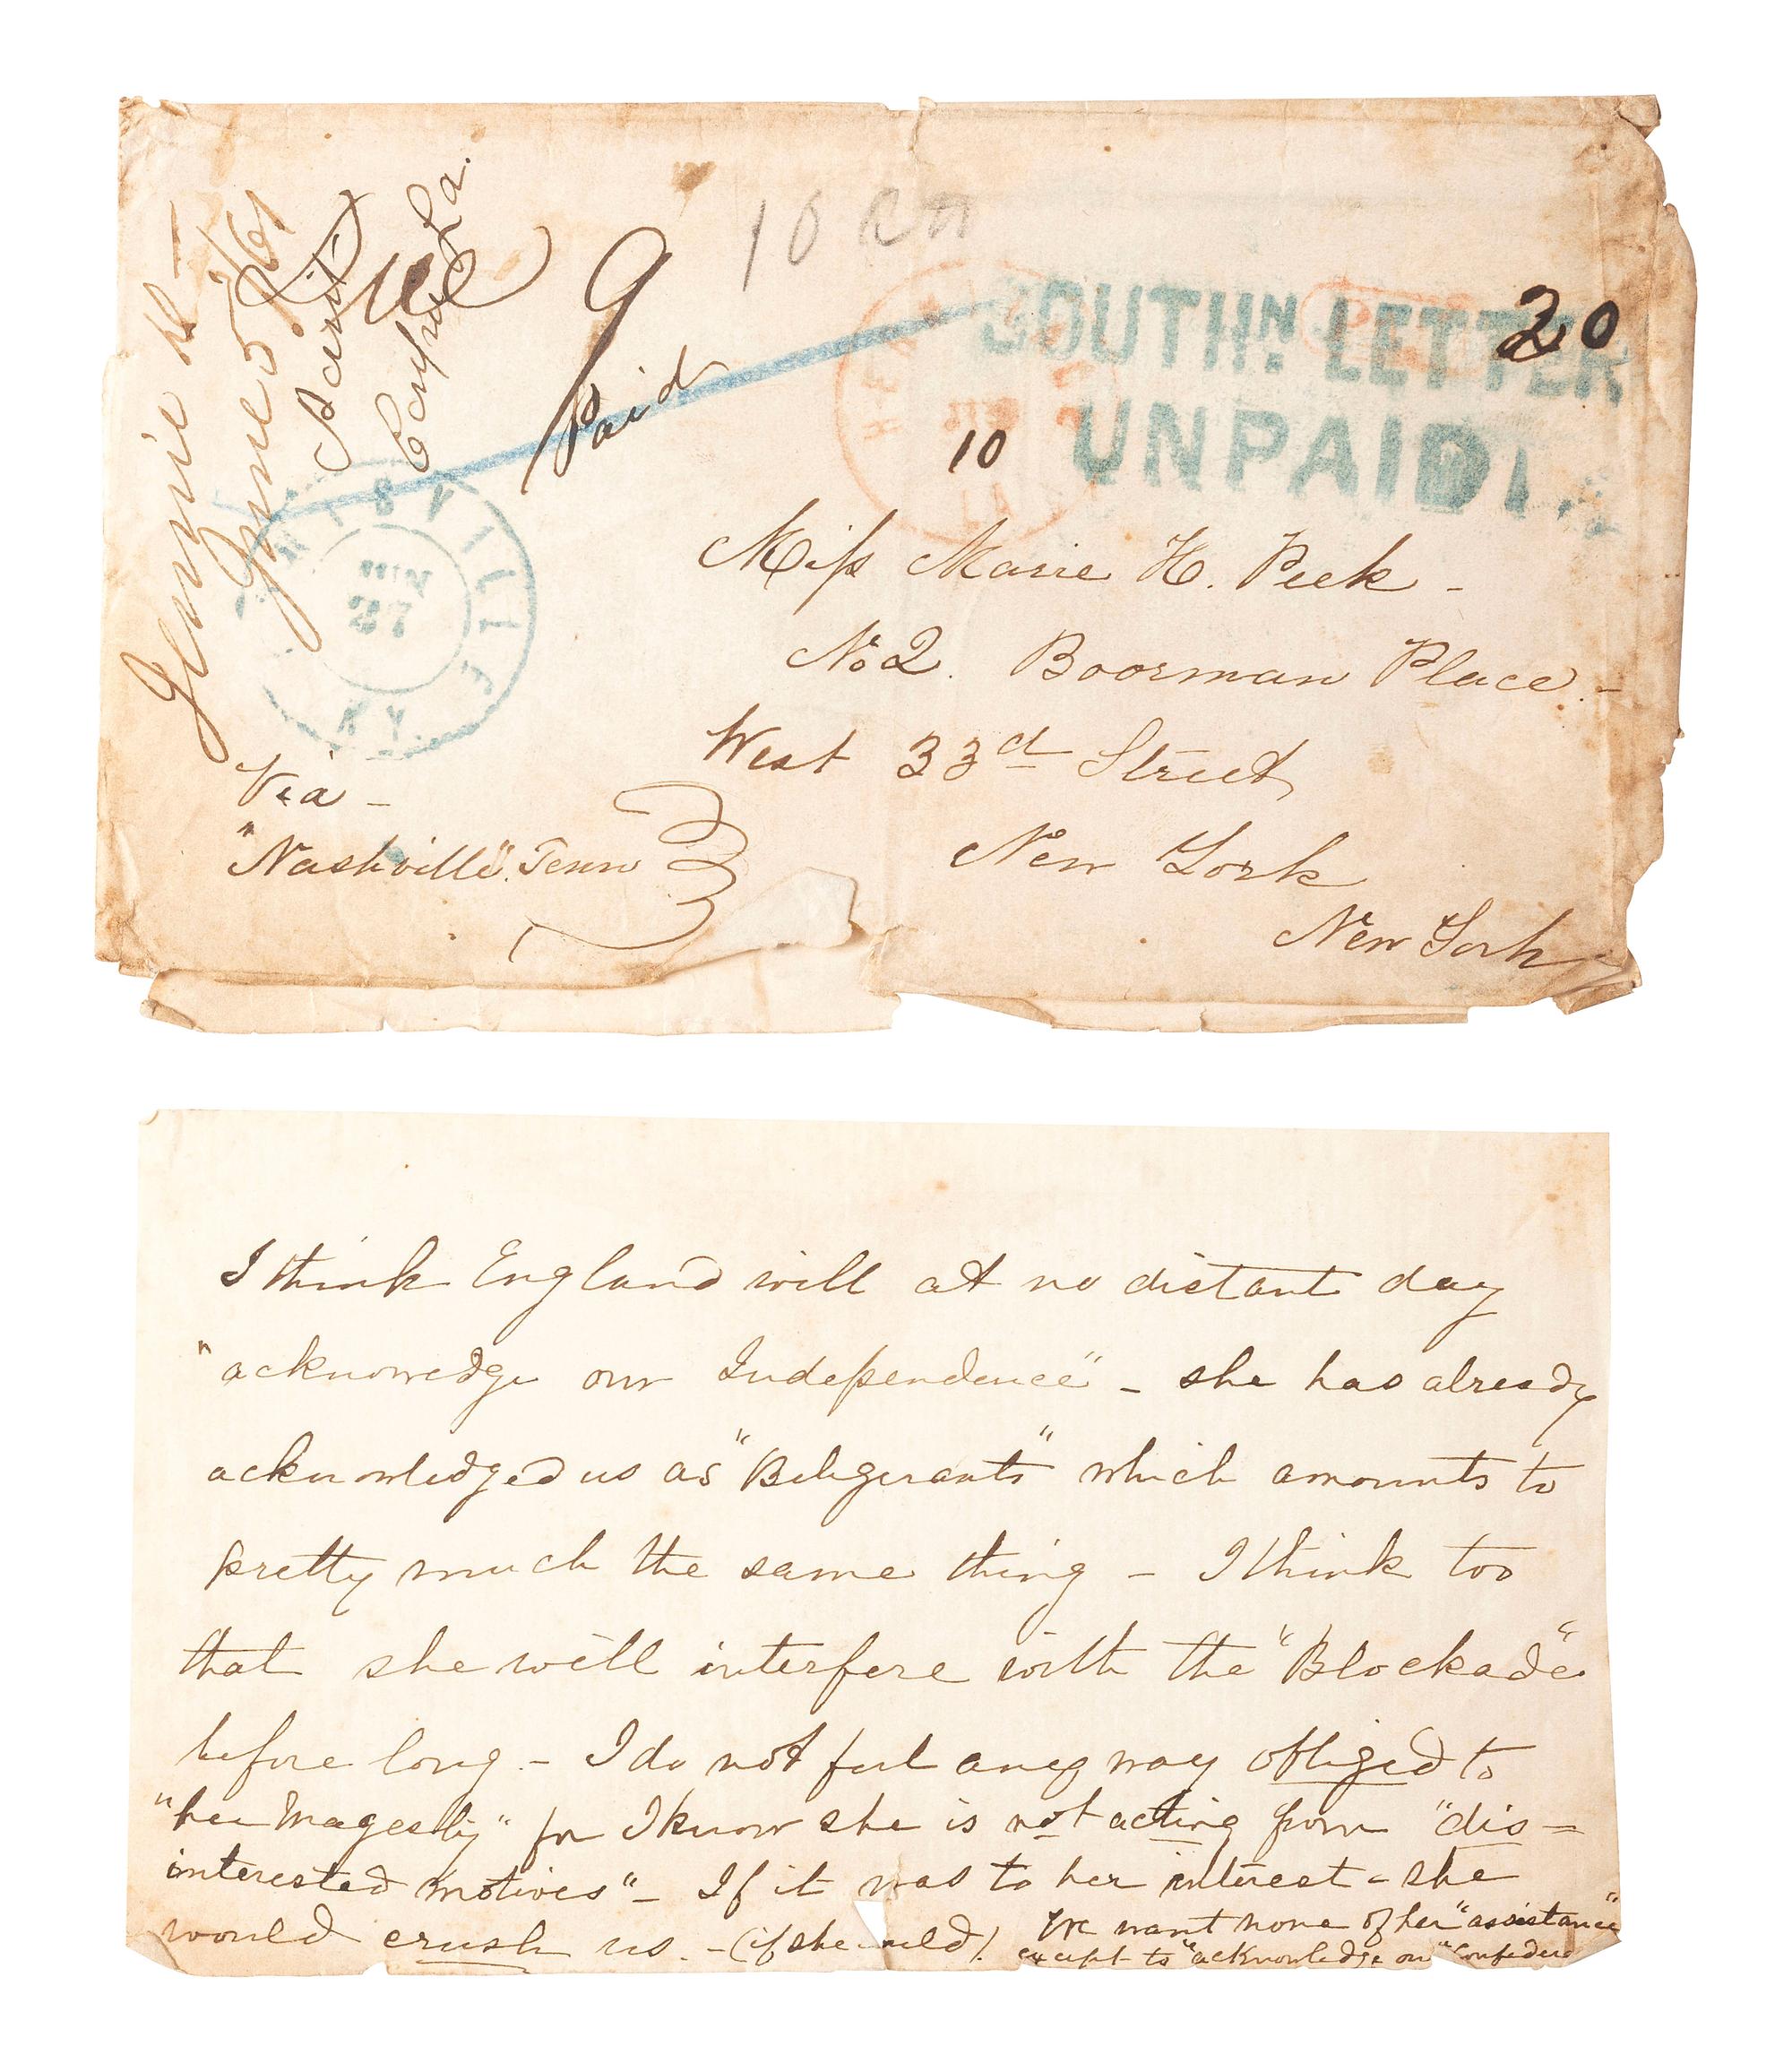 10
SOUTHN. LETTER
UNPAID.
20
9
Paid
10
June 5/61
La.
LOUISVILLE
JUN
27
KY.
Miss Marie H. Peek -
No 2. Boorman Place -
West 33d Street
New York
New York
Via -
"Nashville" Tenn
I think England will at no distant day
"acknowedge our Independence" - she has already
acknowledged us as "Beligerants" which amounts to
pretty much the same thing - I think too
that she will interfere with the "Blockade"
before long - I do not feel any way obliged to
"her Magesty" for I know she is not acting from "dis=
interested motives" - If it was to her interest - she
would crush us. - (if she could). We want none of her "assistance"
except to "acknowledge our "Confeder